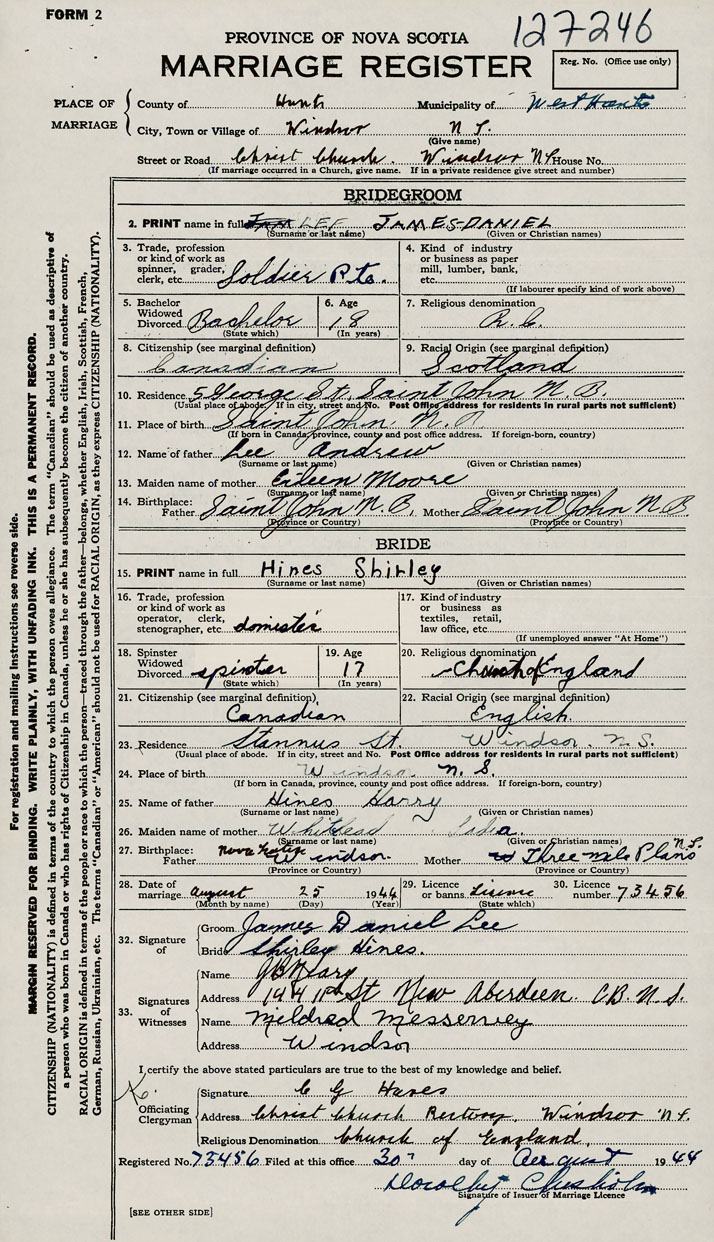 FORM 2
127246
PROVINCE OF NOVA SCOTIA
MARRIAGE REGISTER
Reg. No. (Office use only)
PLACE OF MARRIAGE
County of Hants Municipality of West Hants
City, Town or Village of Windsor N S.
(Give name)
Street or Road Christ Church. Windsor NS House No.
(If marriage occurred in a Church, give name. If in a private residence give street and number)
BRIDEGROOM
2. PRINT name in full LEE JAMES-DANIEL
(Surname or last name) (Given or Christian names)
3. Trade, profession or kind of work as spinner, grader, clerk, etc. Soldier Pte.
4. Kind of industry or business as paper mill, lumber, bank, etc.
(If labourer specify kind of work above)
5. Bachelor Widowed Divorced Bachelor
(State which)
6. Age 18
(In years)
7. Religious denomination R. C.
8. Citizenship (see marginal definition) Canadian
9. Racial Origin (see marginal definition) Scotland
10. Residence 5 George St, Saint John N. B.
(Usual place of abode. If in city, street and No. Post Office address for residents in rural parts not sufficient)
11. Place of birth Saint John N. B.
(If born in Canada, province, county and post office address. If foreign-born, country)
12. Name of father Lee Andrew
(Surname or last name) (Given or Christian names)
13. Maiden name of mother Eileen Moore
(Surname or last name) (Given or Christian names)
14. Birthplace: Father Saint John N.B. Mother Saint John N B.
(Province or Country) (Province or Country)
BRIDE
15. PRINT name in full Hines Shirley
(Surname or last name) (Given or Christian names)
16. Trade, profession or kind of work as operator, clerk, stenographer, etc. domistic
17. Kind of industry or business as textiles, retail, law office, etc.
(If unemployed answer "At Home")
18. Spinster Widowed Divorced spinster
(State which)
19. Age 17
(In years)
20. Religious denomination Church of England
21. Citizenship (see marginal definition) Canadian
22. Racial Origin (see marginal definition) English.
23. Residence Stannus St. Windsor. N. S.
(Usual place of abode. If in city, street and No. Post Office address for residents in rural parts not sufficient)
24. Place of birth Windsor N. S.
(If born in Canada, province, county and post office address. If foreign-born, country)
25. Name of father Hines Harry
(Surname or last name) (Given or Christian names)
26. Maiden name of mother
(Surname or last name) (Given or Christian names)
27. Birthplace: Father Nova Scotia Windsor. Mother Three mile Plains N.S.
(Province or Country) (Province or Country)
28. Date of marriage August 25 1944
(Month by name) (Day) (Year)
29. Licence or banns Licence
(State which)
30. Licence number 73456
32. Signature of
Groom James Daniel Lee
Bride Shirley Hines.
33. Signatures of Witnesses
Name
Address St New Aberdeen C.B. N.S.
Name Mildred Messervey
Address Windsor
I certify the above stated particulars are true to the best of my knowledge and belief.
Officiating Clergyman
Signature C G
Address Christ Church Rectory, Windsor N.S.
Religious Denomination Church of England.
Registered No. 73456 Filed at this office 30 day of August 1944
Dorothy Chisholm
Signature of Issuer of Marriage Licence
[SEE OTHER SIDE]
For registration and mailing instructions see reverse side.
MARGIN RESERVED FOR BINDING. WRITE PLAINLY, WITH UNFADING INK. THIS IS A PERMANENT RECORD.
CITIZENSHIP (NATIONALITY) is defined in terms of the country to which the person owes allegiance. The term "Canadian" should be used as descriptive of
a person who was born in Canada or who has rights of Citizenship in Canada, unless he or she has subsequently become the citizen of another country.
RACIAL ORIGIN is defined in terms of the people or race to which the person—traced through the father—belongs, whether English, Irish, Scottish, French,
German, Russian, Ukrainian, etc. The terms "Canadian" or "American" should not be used for RACIAL ORIGIN, as they express CITIZENSHIP (NATIONALITY).